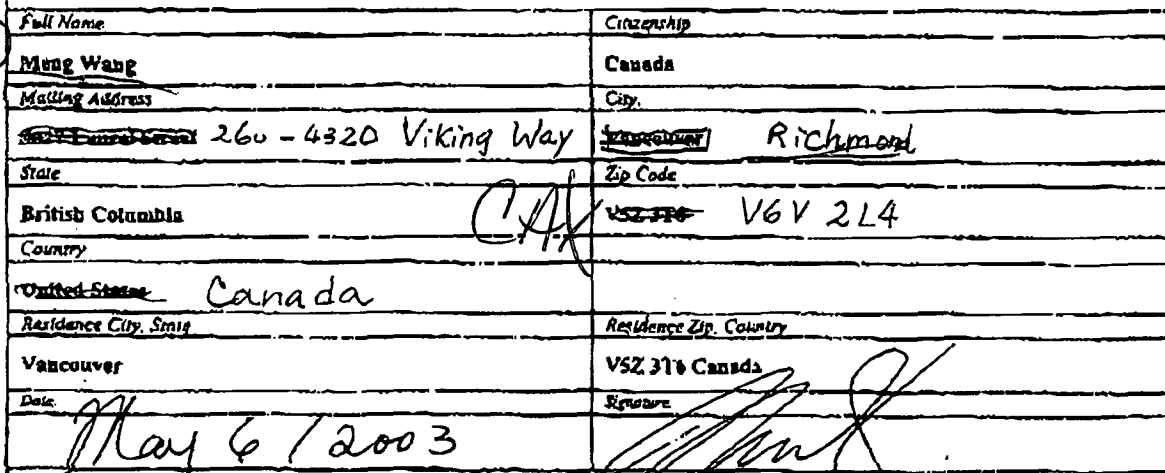 Full Name Citizenship
Meng Wang Canada
Mailing Address City.
260 - 4320 Viking Way Vancouver Richmond
State Zip Code
British Columbia CAX V5Z 3T6 V6V 2L4
Country
United States Canada
Residence City, State Residence Zip, Country
Vancouver V5Z 3T6 Canada
Date Signature
May 6 / 2003